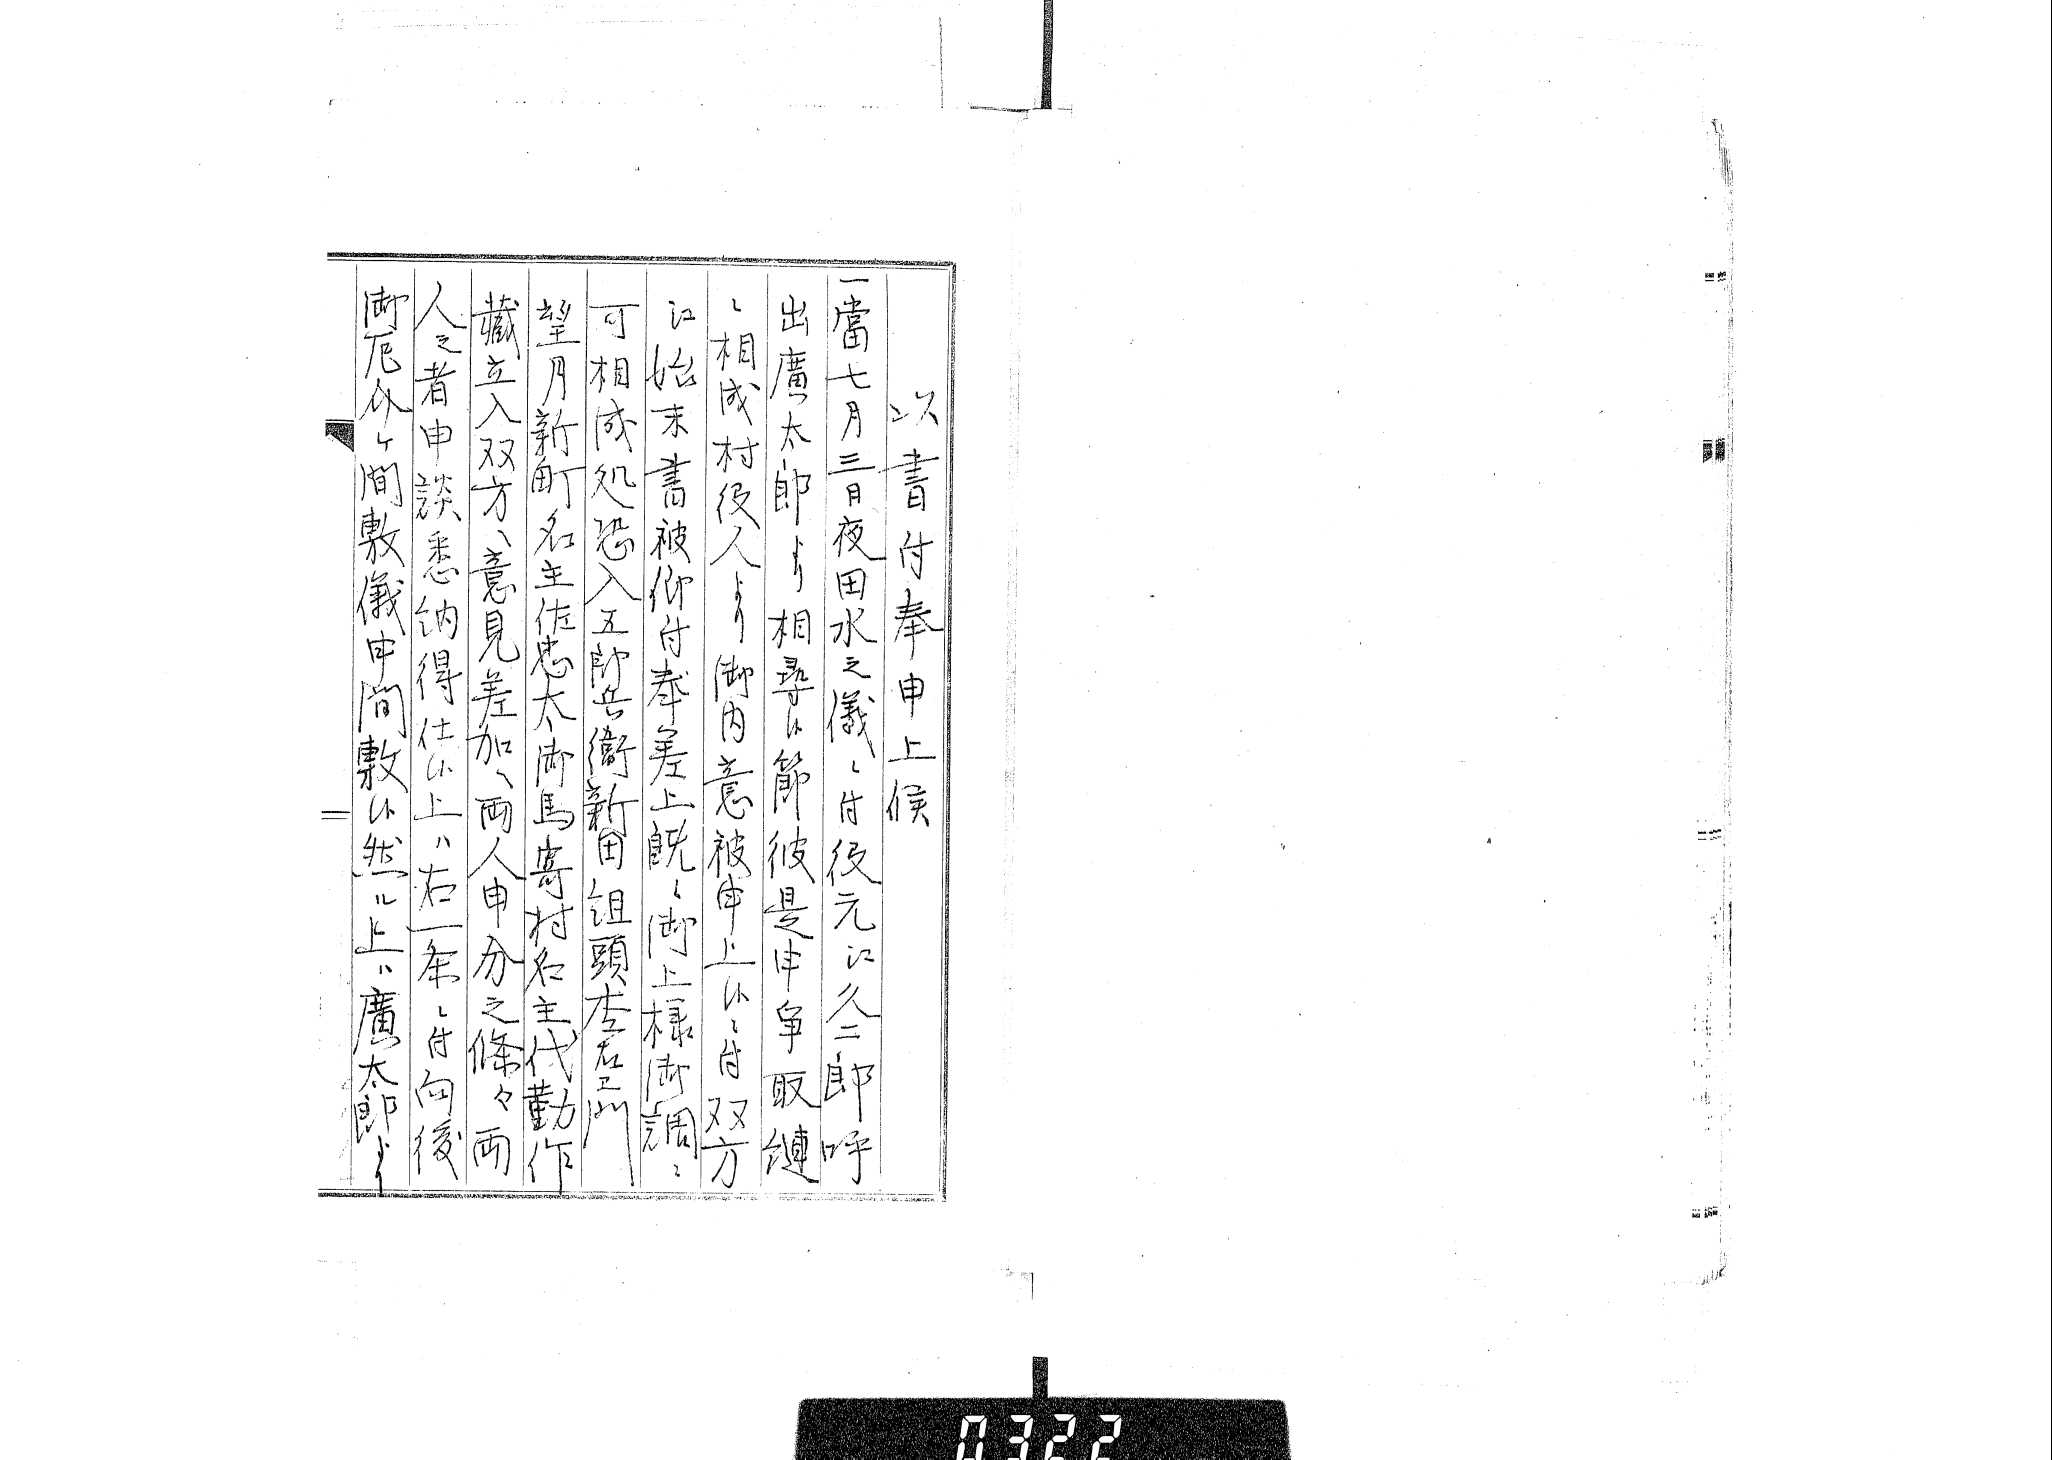 以書付奉申上候
一當七月三日夜田水之儀ニ付役元江久二郎呼
出廣太郎より相尋候節彼是申争取縺
ニ相成村役人より御内意被申上候ニ付双方
江始末書被仰付奉差上既ニ御上様御調ニ
可相成処恐入五郎兵衛新田組頭杢右衛門
望月新町名主佐忠太御馬寄村名主代勤作
藏立入双方へ意見差加へ両人申分之條々両
人之者申談悉納得仕候上ハ右一条ニ付向後
御厄介ケ間敷儀申間敷候然ル上ハ廣太郎より
0322